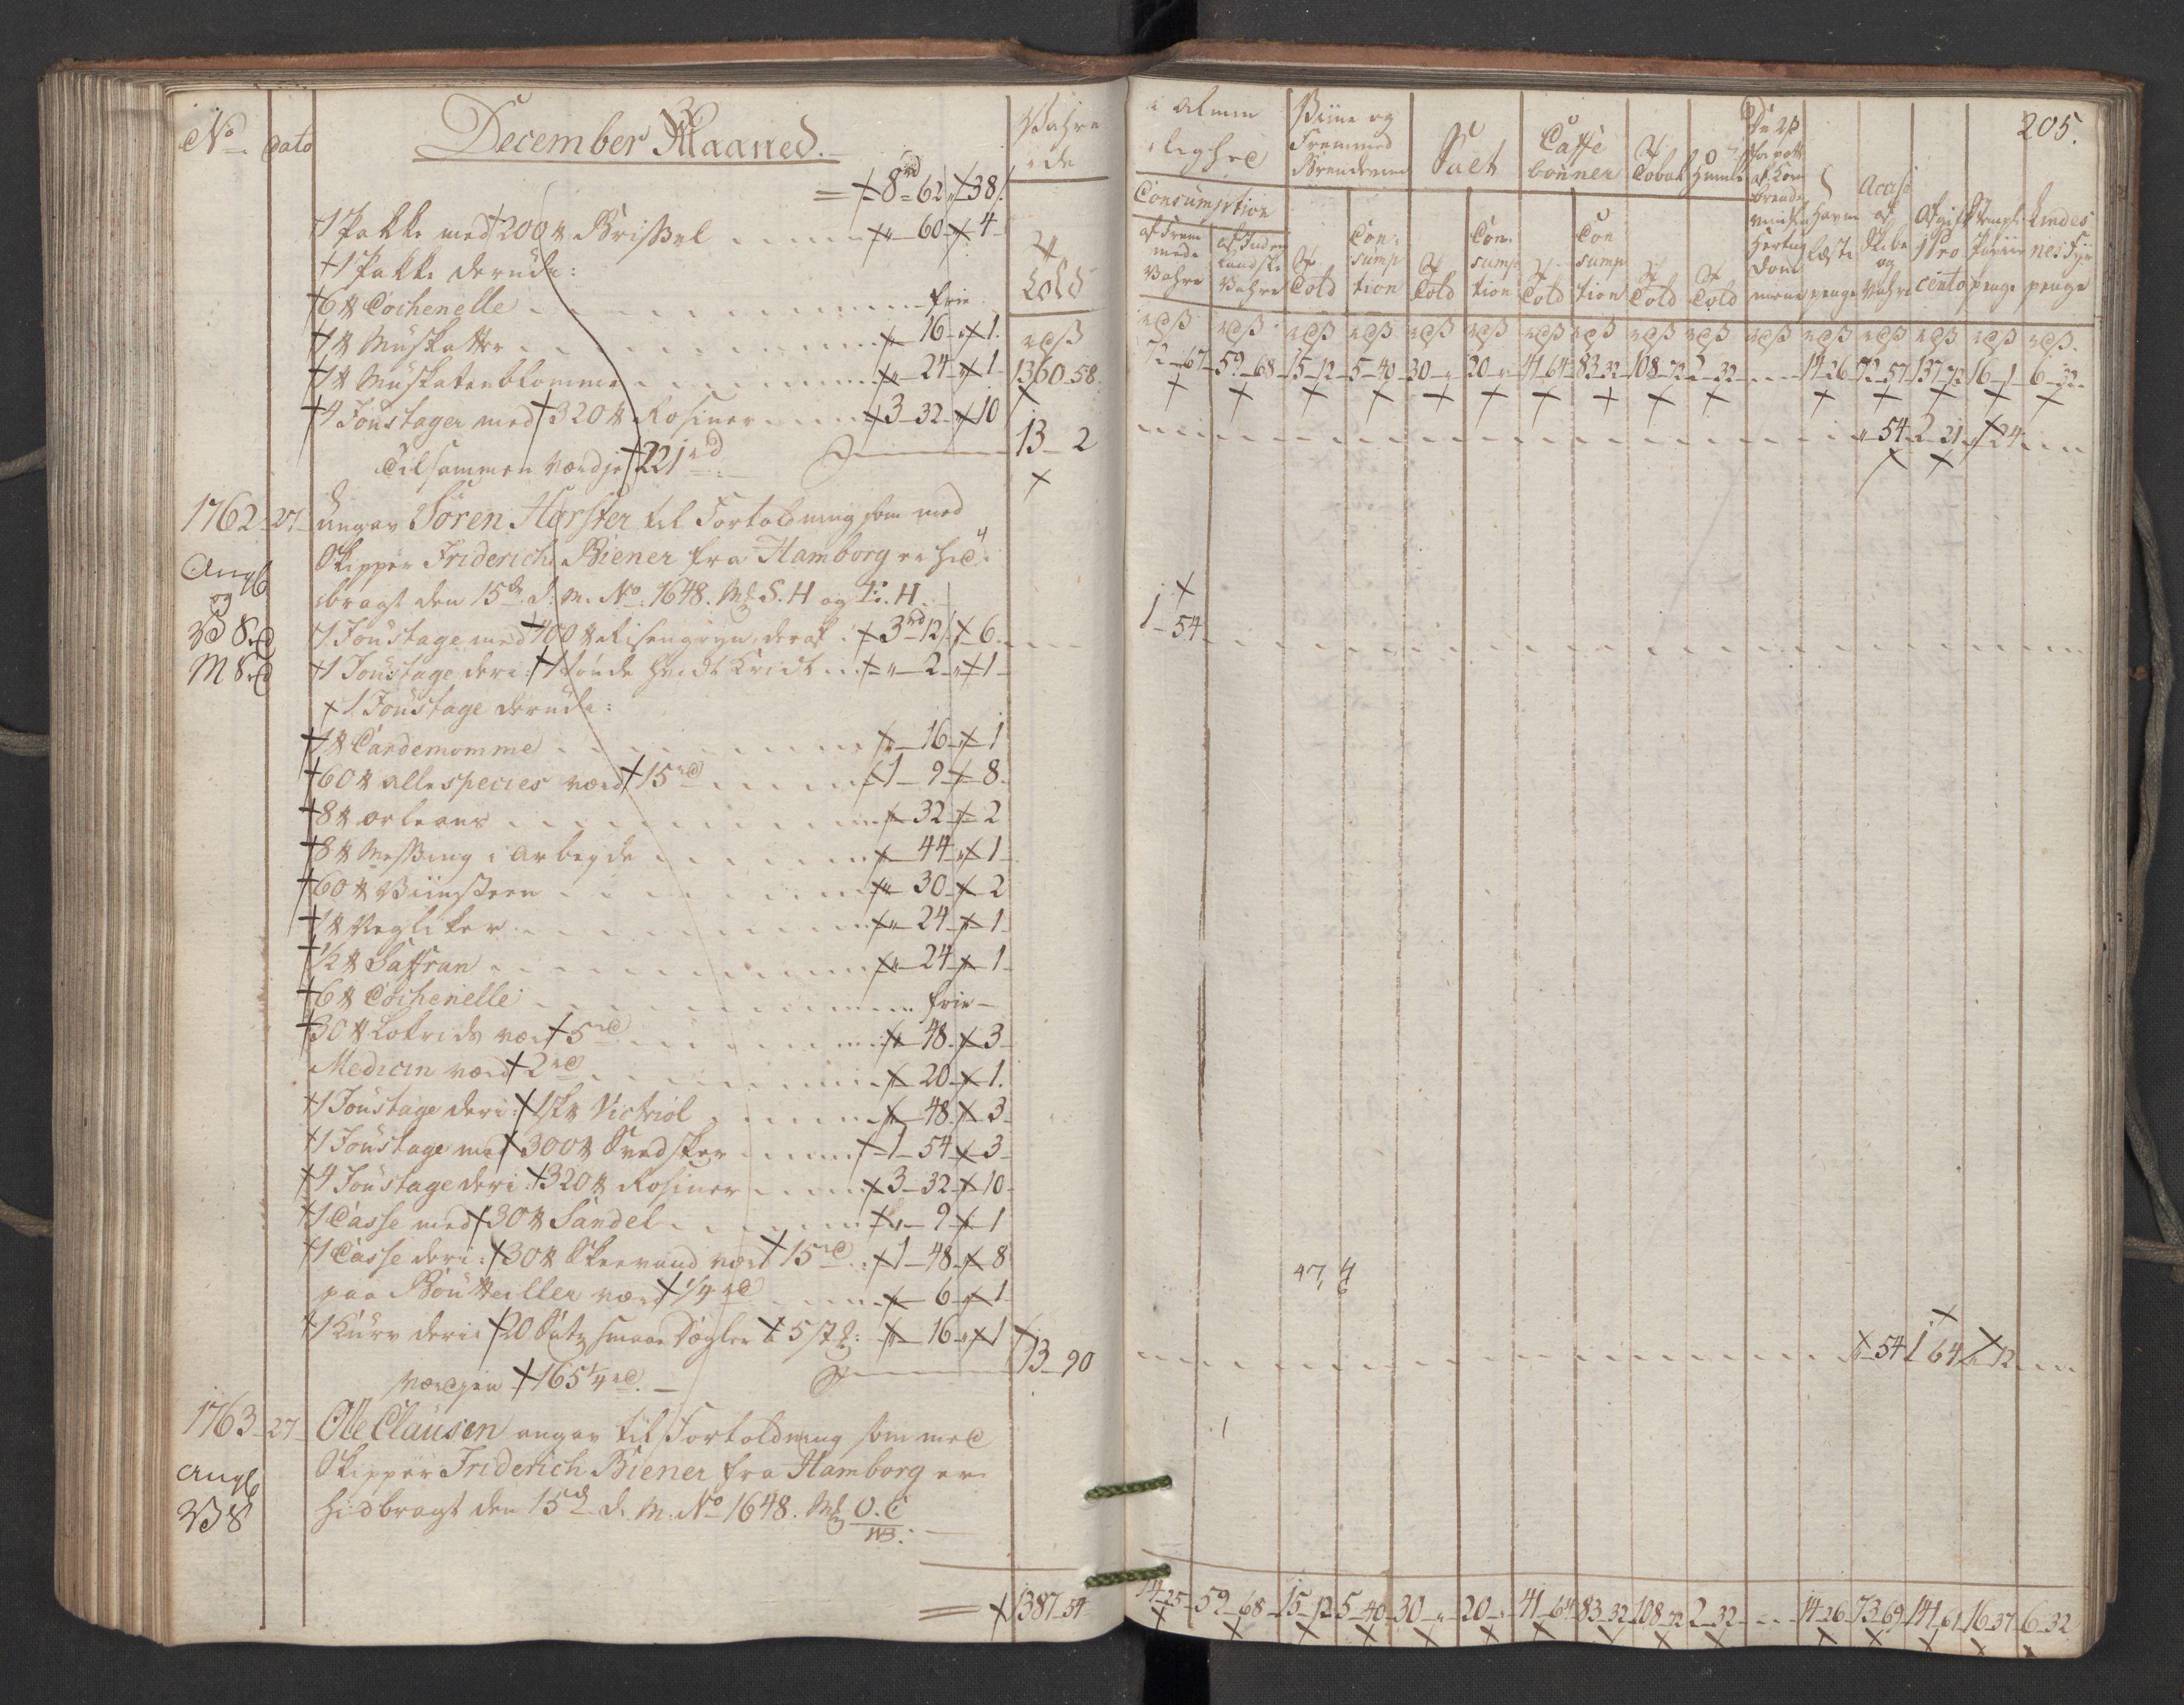 No. Dato
December Maaned.
Vahre
i de
= 8rd 62 38
1 Pakke med 200 ℔ Brissel - 60 - 4
1 Pakke deruda:
6 ℔ Cochenelle frie
1 ℔ Muskatter 16 - 1
1 ℔ Muskatenblomme 24 - 1
4 Foustager med 320 ℔ Rosiner 3 - 32 - 10
Tilsammen Værdje 221 rd
Told
rd ß
1360 - 58
13 - 2
1762 - 27 - Angav Sören Horster til Fortoldning som med
Angb
og
Skipper Friderich Biener fra Hamborg er hid
bragt den 15de d. M. No. 1648. M S. H og H.
1 Foustage med 400 ℔ Risengryn, deraf 3rd 12 - 6
M 8
1 Foustage deri: 1 tönde hvidt Kridt - 2 - 1
1 Foustage deruda:
1 ℔ Cardemomme - 16 - 1
60 ℔ allespecies værd 15 rd 1 - 9 - 8
8 ℔ orleans - 32 - 2
8 ℔ Messing i Arbeyde - 44 - 1
60 ℔ Viinsteen - 30 - 2
1 ℔ Negliker - 24 - 1
1/2 ℔ Saffran - 24 - 1
6 ℔ Cochenelle frie -
30 ℔ Lakrids værd 5 rd - 48 - 3
Medicin værd 2 rd - 20 - 1
1 Foustage deri: 1 sk℔ Victriol - 48 - 3
1 Foustage med 300 ℔ Svedsker 1 - 54 - 3
4 Foustage deri: 320 ℔ Rosiner 3 - 32 - 10
1 Casse med 30 ℔ Sandel - 9 - 1
1 Casse deri: 30 ℔ Skeevand værd 15 rd 1 - 48 - 8
paa Boutteiller værd 1/4 rd - 6 - 1
1 Kurv deri 20 Sätz smaae Digler 16 - 1
Værdjen 165 1/4 rd.
13 - 90
1763 - 27 - Ole Clausen angav til Fortoldning som med
Angb
Skipper Friderich Biener fra Hamborg er
hidbragt den 15de d. M. No 1648. M O. C
1387 - 54
205.
i Almin
delighed
Viine og
Fremmed
Brendeviin
Salt
Caffe
bönner
Tobak
Humle
Consumption
af Frem
mede
Vahre
af Inden
Landske
Vahre
Told
Con
sump
tion
Told
Con
sump
tion
Told
Con
sump
tion
Told
Told
Havne
penge
Afgift
1 Pro
cento
Stempl
Papiir
penge
Lindes
nes Fyr
penge
72 - 67 59 - 68 15 - 12 5 - 40 30 - 20 - 41 - 64 83 - 32 108 - 72 2 - 32 14 - 26 72 - 57 137 - 72 16 - 1 6 - 32
54 2 - 21 24
1 - 54
47 4
54 1 64 12
74 - 25 59 - 68 15 - 12 5 - 40 30 - 20 - 41 - 64 83 - 32 108 - 72 2 - 32 14 - 26 73 - 69 141 - 61 16 - 37 6 - 32